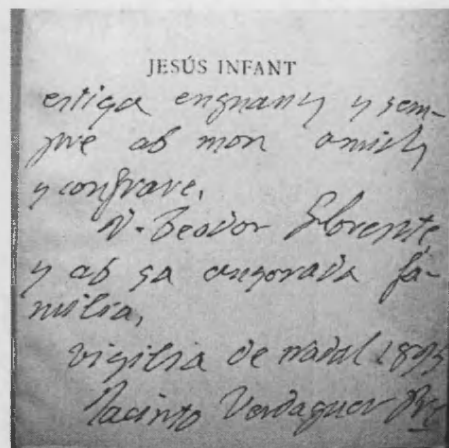 JESÚS INFANT
estiga enguany y sem-
pre ab mon amich
y confrare,
D. Teodor Llorente,
y ab sa anyorada fa-
milia,
vigilia de Nadal 1895
Jacinto Verdaguer Pre